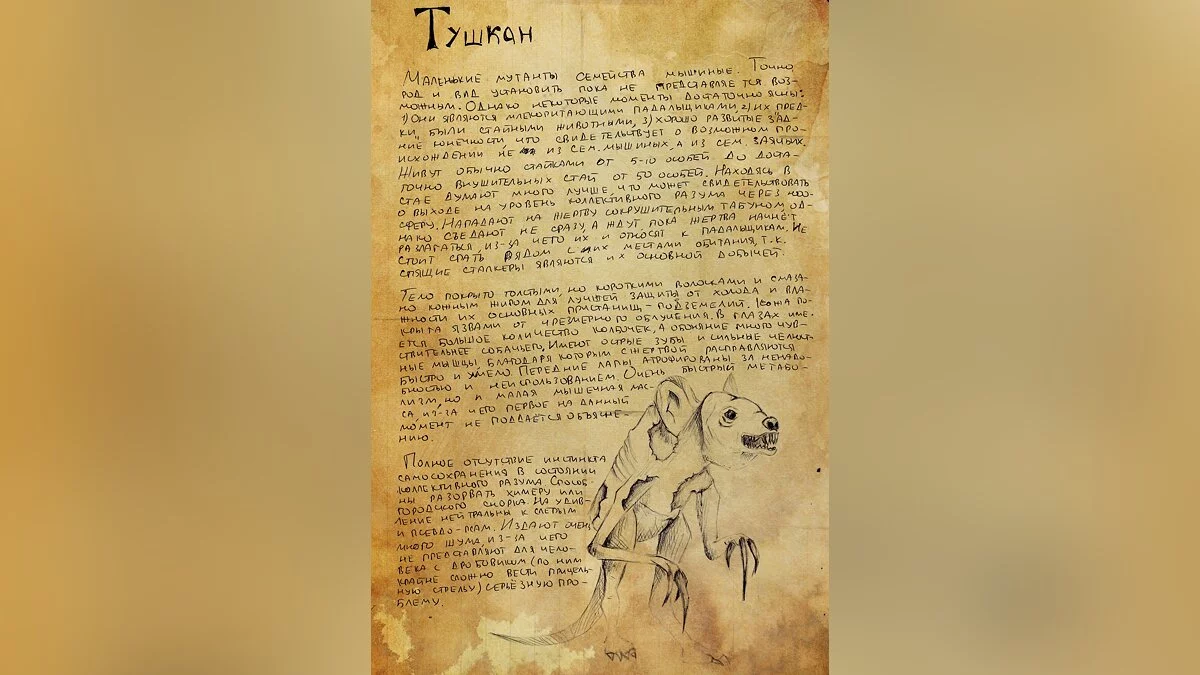 Тушкан
Маленькие мутанты семейства мышиные. Точно
род и вид установить пока не представляется воз-
можным. Однако некоторые моменты достаточно ясны:
1) Они являются млекопитающими падальщиками 2) их пред-
ки были стайными животными, 3) хорошо развитые зад-
ние конечности, что свидетельствует о возможном про-
исхождении не из сем. мышиных, а из сем. заячьих.
Живут обычно стайками от 5-10 особей. До доста-
точно внушительных стай от 50 особей. Находясь в
стае думают много лучше, что может свидетельствовать
о выходе на уровень коллективного разума через ноо-
сферу. Нападают на жертву сокрушительным табуном, од-
нако съедают не сразу, а ждут пока жертва начнёт
разлагаться, из-за чего их и относят к падальщикам. Не
стоит спать рядом с их местами обитания, т.к.
спящие сталкеры являются их основной добычей.
Тело покрыто толстыми, но короткими волосками и смаза-
но кожным жиром для лучшей защиты от холода и вла-
жности их основных пристанищ - подземелий. Кожа по-
крыта язвами от чрезмерного облучения. В глазах име-
ется большое количество колбочек, а обоняние много чув-
ствительнее собачьего. Имеют острые зубы и сильные челюст-
ные мышцы благодаря которым с жертвой расправляются
быстро и умело. Передние лапы атрофированы за ненадо-
бностью и неиспользованием. Очень быстрый метабо-
лизм, но и малая мышечная мас-
са, из-за чего первое на данный
момент не поддаётся объясне-
нию.
Полное отсутствие инстинкта
самосохранения в состоянии
коллективного разума. Способ-
ны разорвать химеру или
городского снорка. На удив-
ление нейтральны к слепым
и псевдо-псам. Издают очень
много шума, из-за чего
не представляют для чело-
века с дробовиком (по ним
крайне сложно вести прицель-
ную стрельбу) серьёзную про-
блему.